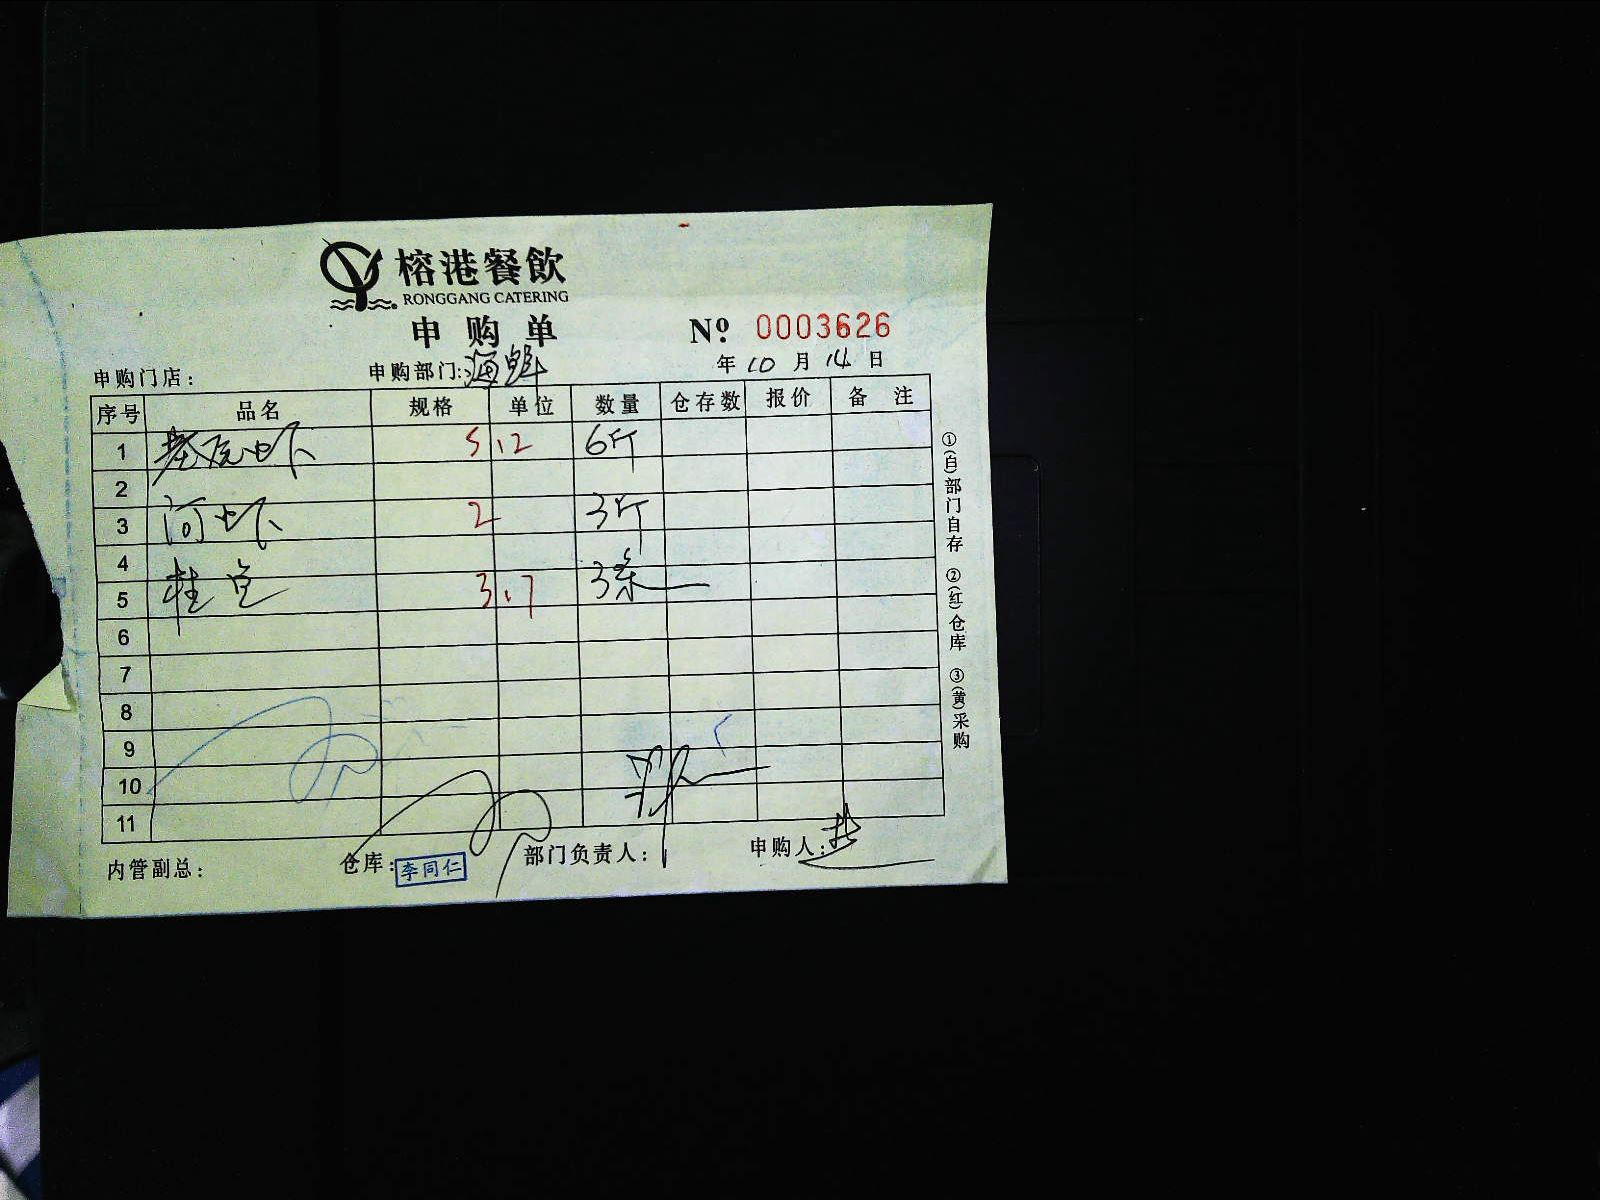 榕港餐飲
RONGGANG CATERING
申购单
Nº 0003626
申购门店： 申购部门：海鲜 年 10 月 14 日
序号 品名 规格 单位 数量 仓存数 报价 备注
1 基围虾 5.12 6斤
2
3 河虾 2 3斤
4
5 桂鱼 3.7 3条
6
7
8
9
10
11
内管副总： 仓库：李同仁 部门负责人： 申购人：
①(白)部门自存 ②(红)仓库 ③(黄)采购